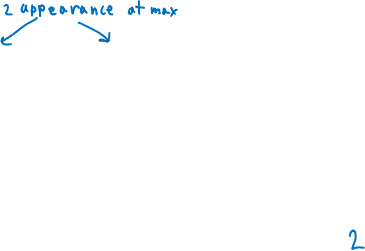 2 appearance at max
2